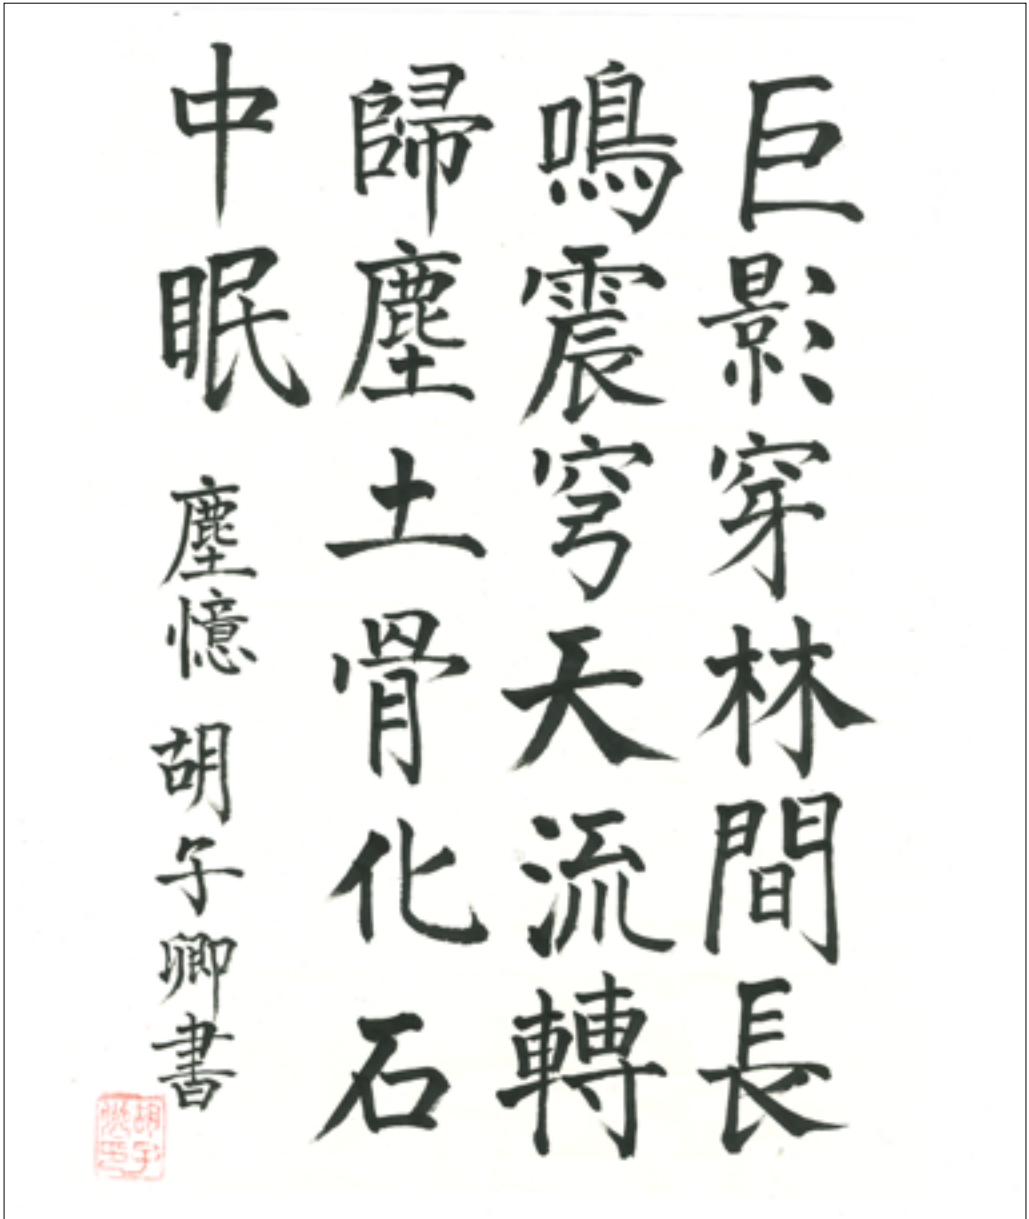 巨影穿林間長
鳴震穹天流轉
歸塵土骨化石
中眠 塵憶 胡子卿書